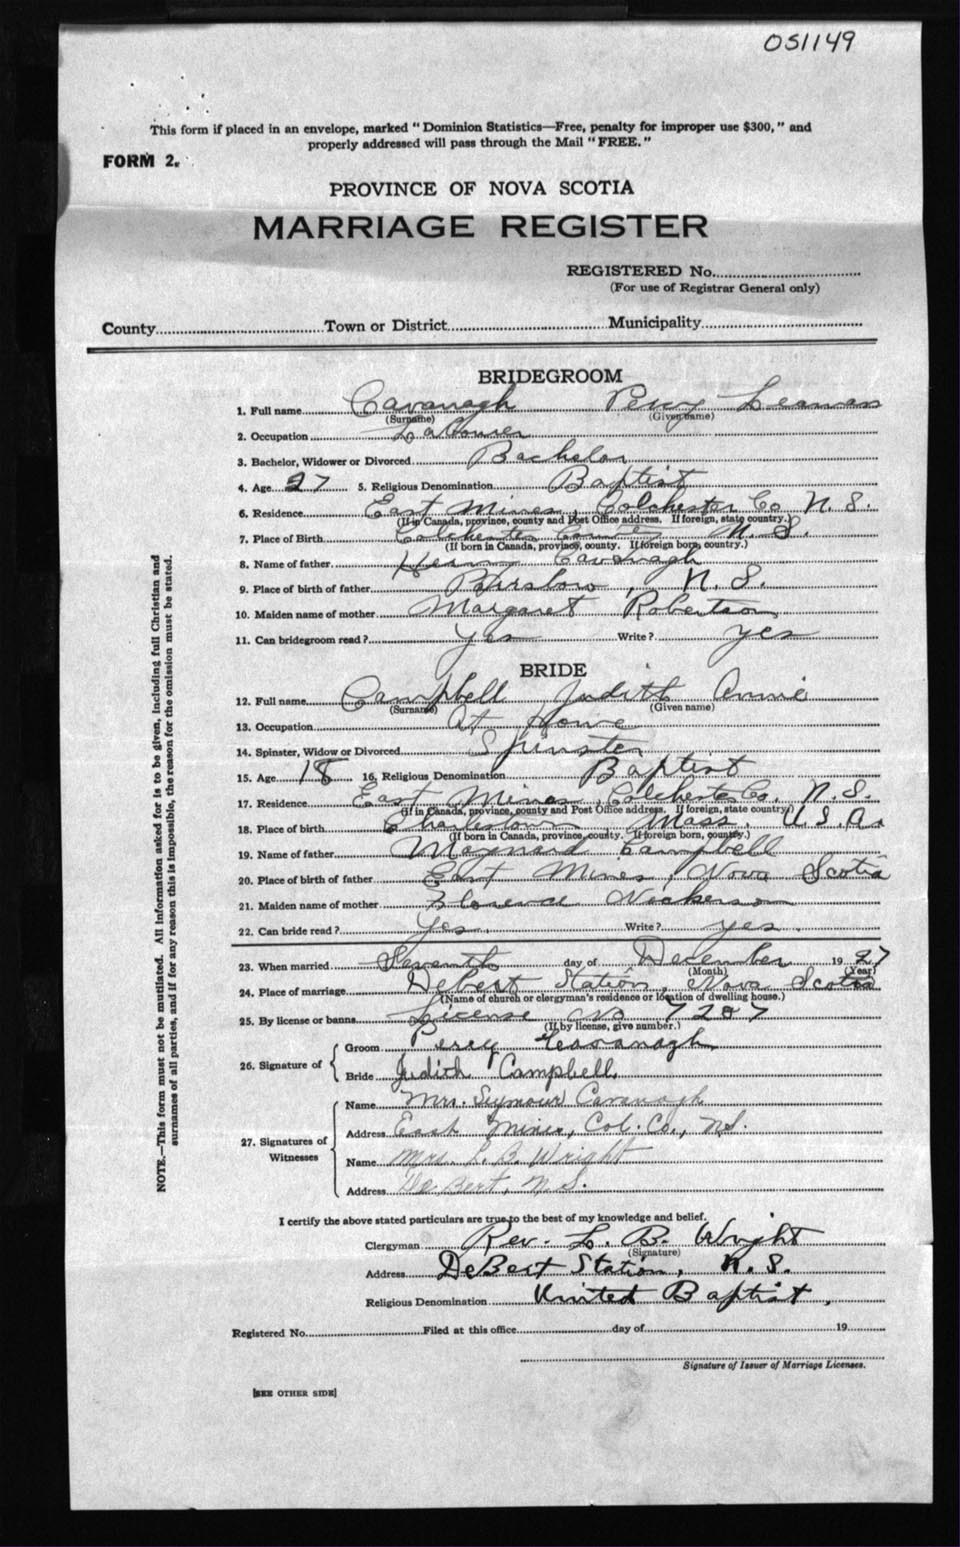 051149
This form if placed in an envelope, marked "Dominion Statistics—Free, penalty for improper use $300," and
properly addressed will pass through the Mail "FREE."
FORM 2.
PROVINCE OF NOVA SCOTIA
MARRIAGE REGISTER
REGISTERED No.
(For use of Registrar General only)
County Town or District Municipality
BRIDEGROOM
1. Full name Cavanagh Percy Leaman
(Surname) (Given name)
2. Occupation Labourer
3. Bachelor, Widower or Divorced Bachelor
4. Age 27 5. Religious Denomination Baptist
6. Residence East Mines, Colchester Co N. S.
(If in Canada, province, county and Post Office address. If foreign, state country.)
7. Place of Birth Colchester County N. S.
(If born in Canada, province, county. If foreign born, country.)
8. Name of father Henry Cavanagh
9. Place of birth of father N. S.
10. Maiden name of mother Margaret Robertson
11. Can bridegroom read? Yes Write? yes
BRIDE
12. Full name Campbell Judith Annie
(Surname) (Given name)
13. Occupation At Home
14. Spinster, Widow or Divorced Spinster
15. Age 18 16. Religious Denomination Baptist
17. Residence East Mines, Colchester Co. N. S.
(If in Canada, province, county and Post Office address. If foreign, state country.)
18. Place of birth Charlestown Mass. U. S. A.
(If born in Canada, province, county. If foreign born, country.)
19. Name of father Maynard Campbell
20. Place of birth of father East Mines, Nova Scotia
21. Maiden name of mother Florence Nickerson
22. Can bride read? Yes. Write? yes.
23. When married Seventh day of December 1927
(Month) (Year)
24. Place of marriage Debert Station, Nova Scotia
(Name of church or clergyman's residence or location of dwelling house.)
25. By license or banns License No 7287
(If by license, give number.)
26. Signature of
Groom Percy Cavanagh
Bride Judith Campbell
27. Signatures of Witnesses
Name Mrs. Seymour Cavanagh
Address East Mines, Col. Co., N.S.
Name Mrs. L. B. Wright
Address De Bert, N.S.
I certify the above stated particulars are true to the best of my knowledge and belief.
Clergyman Rev. L. B. Wright
(Signature)
Address DeBert Station, N. S.
Religious Denomination United Baptist.
Registered No. Filed at this office day of 19
Signature of Issuer of Marriage Licenses.
[SEE OTHER SIDE]
NOTE.—This form must not be mutilated. All information asked for is to be given, including full Christian and
surnames of all parties, and if for any reason this is impossible, the reason for the omission must be stated.